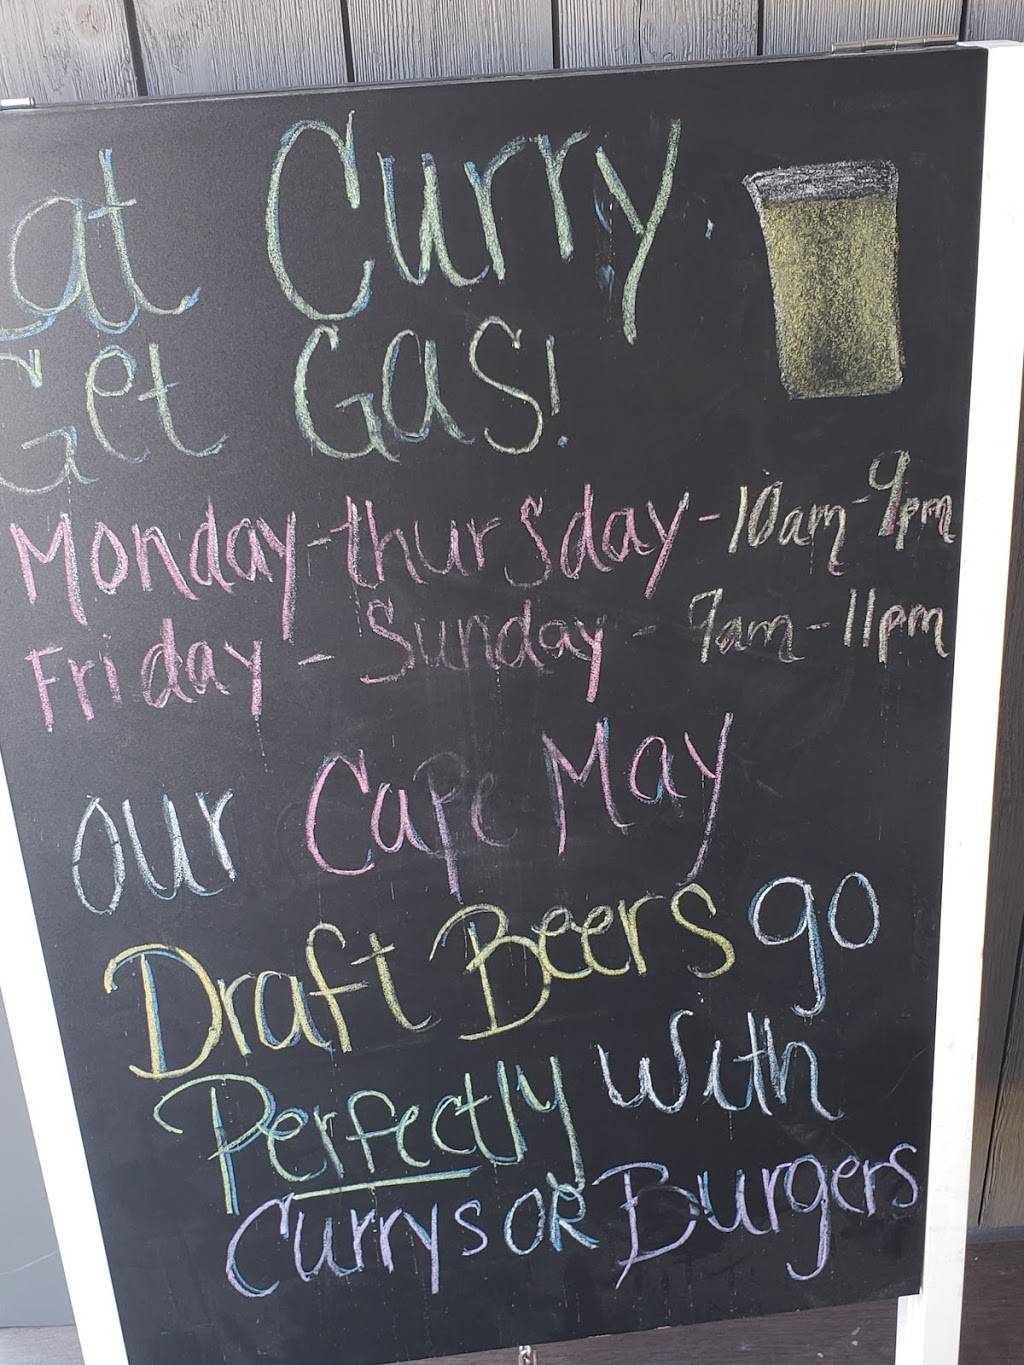 Eat Curry.
Get GaS!
Monday-thurSday-10am-9pm
Friday - Sunday - 9am-11pm
our Cape May
Draft Beers go
Perfectly With
Currys OR Burgers